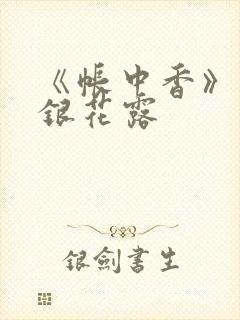 《帳中香》
銀花露
银劍書生